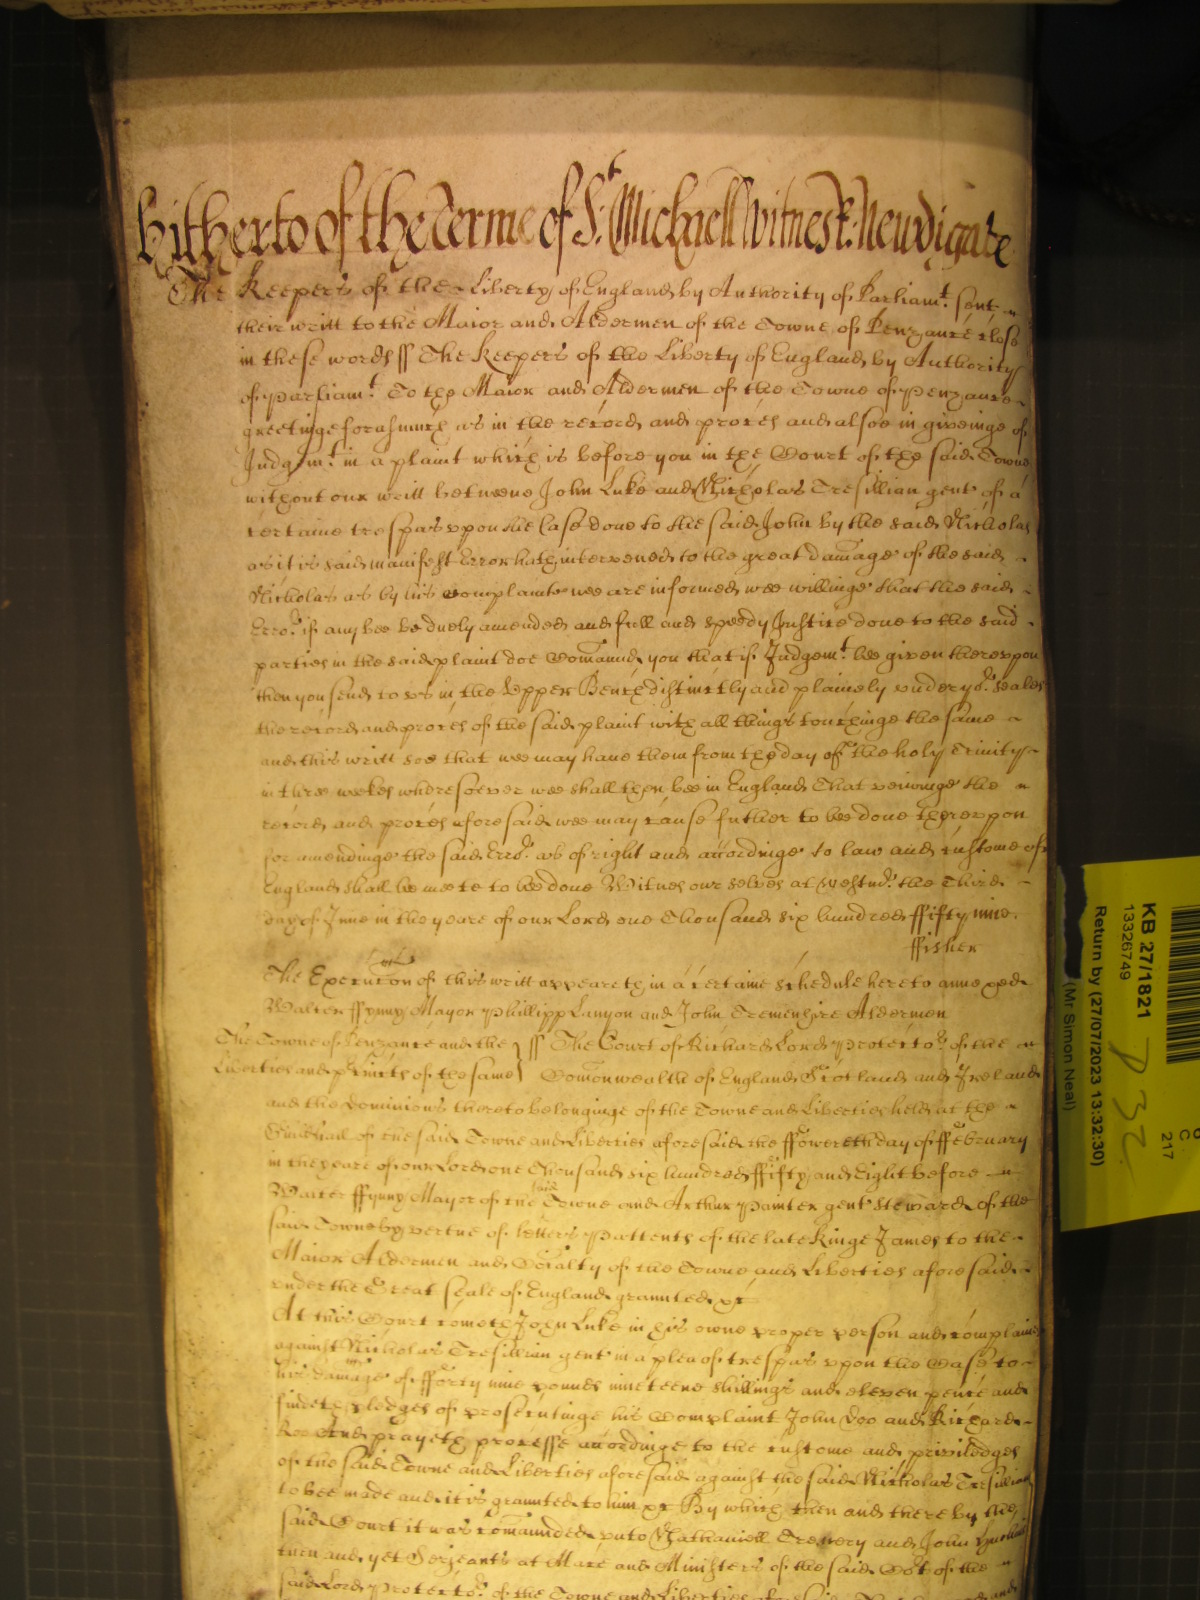 hitherto of the Terme of St. Michaell Witnes R: Newdigate
The Keepers of the Liberty of England by Authority of Parliamt. sent
their writt to the Maior and Aldermen of the Towne of Penzance close
in these words ff The Keepers of the Liberty of England by Authority
of Parliamt. To the Maior and Aldermen of the Towne of Penzance
greetinge forasmuch as in the record and proces and alsoe in giveinge of
Judgemt. in a plaint which is before you in the Court of the said Towne
without our writt betweene John Luke and Nicholas Tresillian gent of a
certaine trespas upon the Case done to the said John by the said Nicholas
as it is said manifest Error hath intervened to the great damage of the said
Nicholas as by his Complainte wee are informed wee willinge that the said
Erro.r if any bee be duely amended and full and speedy Justice done to the said
parties in the said plaint doe Comaund you that if Judgemt. be given thereupon
then you send to us in the Upper Bench distinctly and plainely under yor. seales
the record and proces of the said plaint with all things touchinge the same
and this writt soe that wee may have them from the day of the holy Trinity
in three weekes wheresoever wee shall then bee in England That veiwinge the
record and proces aforesaid wee may cause futher to be done thereupon
for amendinge the said Erro.r as of right and accordinge to law and custome of
England shall be meete to be done Witnes our selves at Westmr. the Third
day of June in the yeare of our Lord one Thousand six hundred ffifty nine.
ffisher
The Execucon of this writt appeareth in a certaine schedule hereto annexed
Walter ffynny Mayor Phillipp Lanyon and John Tremenhire Aldermen
The Towne of Penzance and the } ff The Court of Richard Lord Protecto.r of the
Liberties and precincts of the same } Comonwealth of England Scotland and Ireland
and the Dominions thereto belonginge of the Towne and Liberties held at the
Guildhall of the said Towne and Liberties aforesaid the ffowerth day of ffebruary
in the yeare of our Lord one Thousand six hundred ffifty and Eight before
Walter ffynny Mayor of the said Towne and Arthur Painter gent Steward of the
said Towne by vertue of letters Pattents of the late Kinge James to the
Maior Aldermen and Coialty of the Towne and Liberties aforesaid
under the Great seale of England graunted &c
At this Court cometh John Luke in his owne proper person and complaines
against Nicholas Tresillian gent in a plea of trespas upon the Case to
his damage of fforty nine pounds nineteene shillings and eleven pence and
findeth pledges of prosecutinge his Complaint John Doo and Richard
Roo And prayeth processe accordinge to the custome and priviledges
of the said Towne and Liberties aforesaid against the said Nicholas Tresillian
to bee made and it is graunted to him &c By which then and there by the
said Court it was comaunded unto Nathaniell Trewery and John
then and yet Serjeants at Mace and Ministers of the said Cot of the
said Lord Protecto.r of the Towne and Liberties aforesaid
KB 27/1821
13326749
Return by (27/07/2023 13:32:30)
(Mr Simon Neal)
C
217
P 32